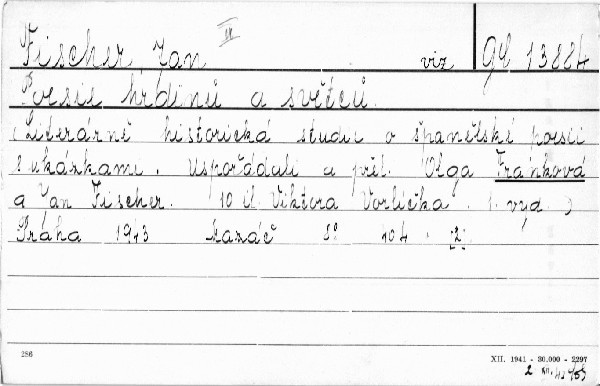 Fischer, Jan IV viz Gč 13884
Poesie hrdinů a světců.
(Literárně historická studie o španělské poesii
s ukázkami. Uspořádali a přel. Olga Fránková
a Jan Fischer. 10 il. Viktora Vorlíčka. 1. vyd.)
Praha 1943 Kazáč 8° 104. [2].
286
XII. 1941 - 30.000 - 2297
2